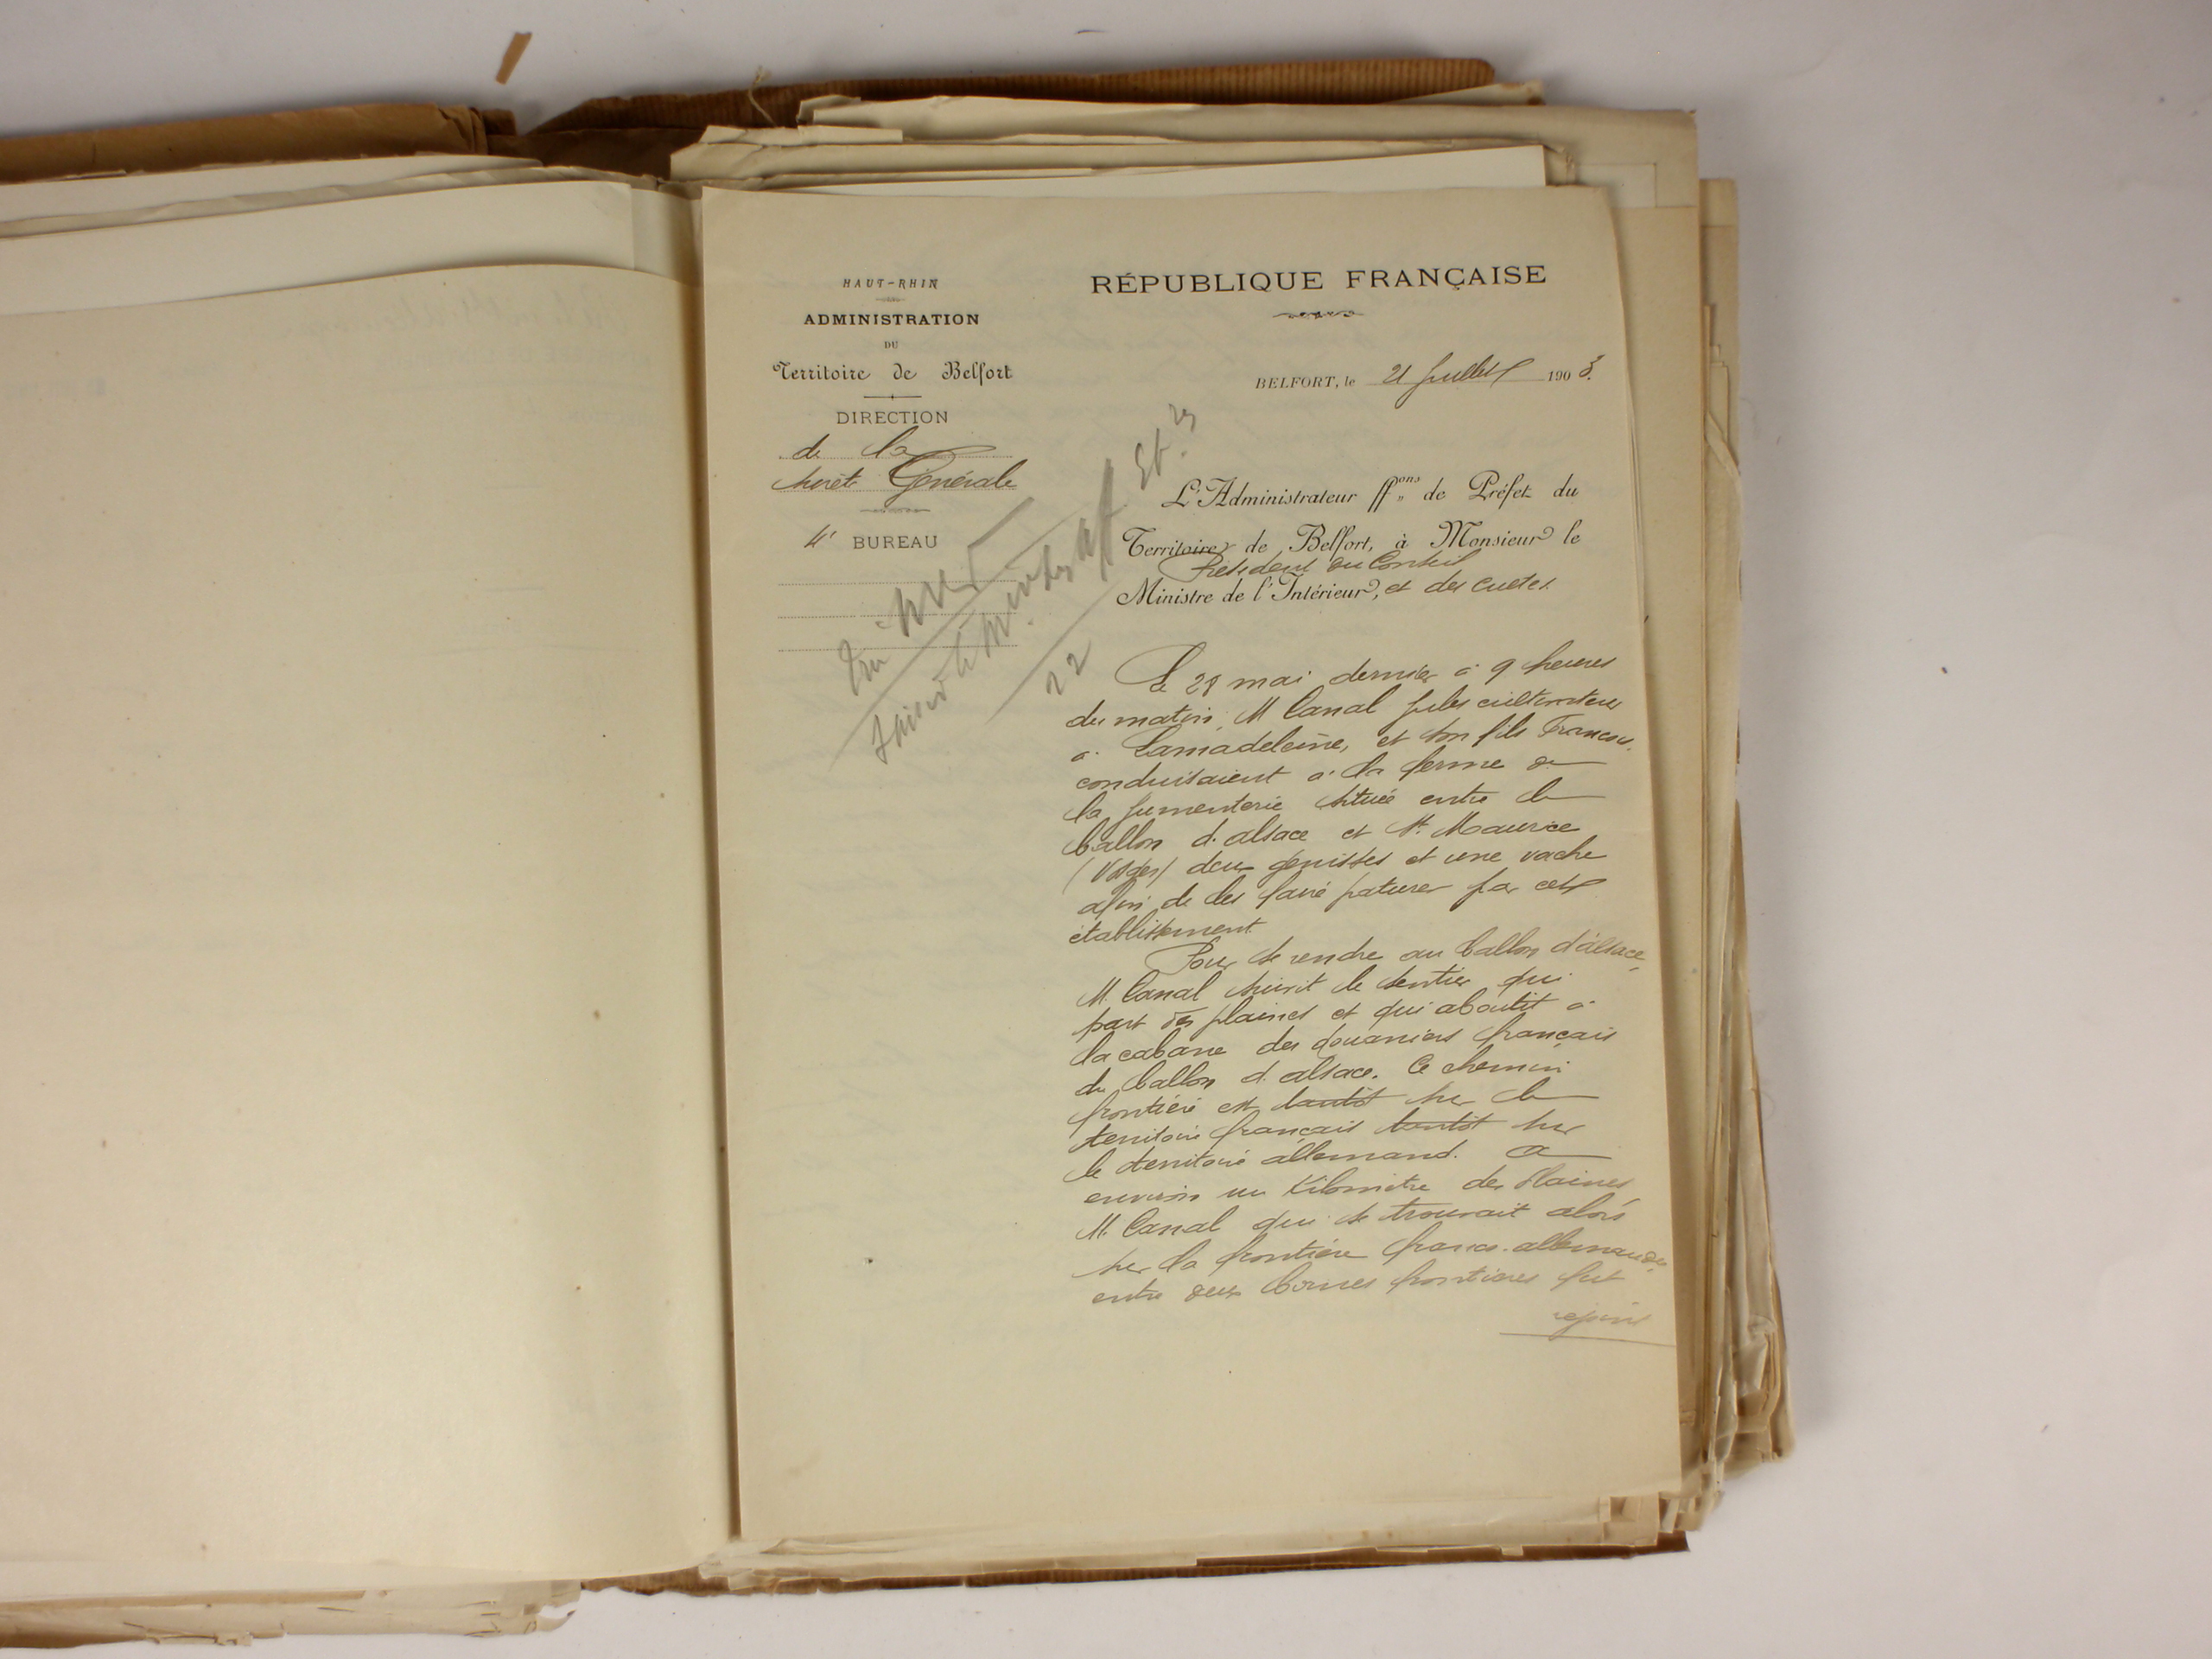 HAUT-RHIN
ADMINISTRATION
DU
Territoire de Belfort
DIRECTION
de la
Sureté Générale
4e BUREAU
RÉPUBLIQUE FRANÇAISE
BELFORT, le 21 Juillet 1903.
L'Administrateur ff.ons de Préfet du
Territoire de Belfort, à Monsieur le
Président du Conseil
Ministre de l'Intérieur, et des Cultes.
Le 28 mai dernier à 9 heures
du matin, M Canal Jules cultivateur
à Lamadeleine, et son fils
conduisaient à la ferme de
la Jumenterie située entre le
ballon d'alsace et St Maurice
(Vosges) deux genisses et une vache
afin de les faire paturer par cet
établissement.
Pour se rendre au ballon d'alsace,
M. Canal suivit le sentier qui
part des plaines et qui aboutit à
la cabane des douaniers français
du ballon d'alsace. Ce chemin
frontière est tantôt sur le
territoire français tantôt sur
le territoire allemand. A
environ un kilomètre des Plaines
M. Canal qui se trouvait alors
sur la frontière franco-allemande,
entre deux bornes frontières fut
rejoint
22